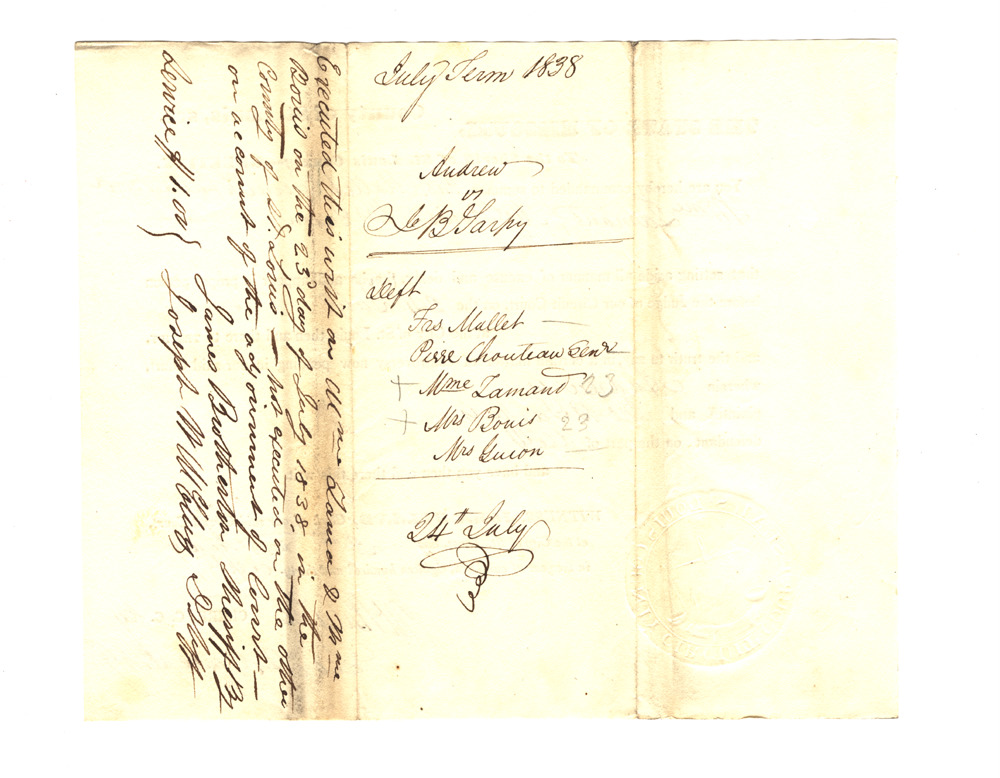 July Term 1838
Andrew
vs
B Sarpy
Deft
Frs Mallet —
Pierre Chouteau Senr
+ Mme Lamand 23
+ Mrs Bouis 23
Mrs Guion
24th July
Executed this writ on Mme Lama & Mme
Bouis on the 23d day of July 1838. in the
County of St Louis — not executed on the other
on account of the adjournment of Court —
James Brotherton Sheriff By
Service $1.00 } Joseph M